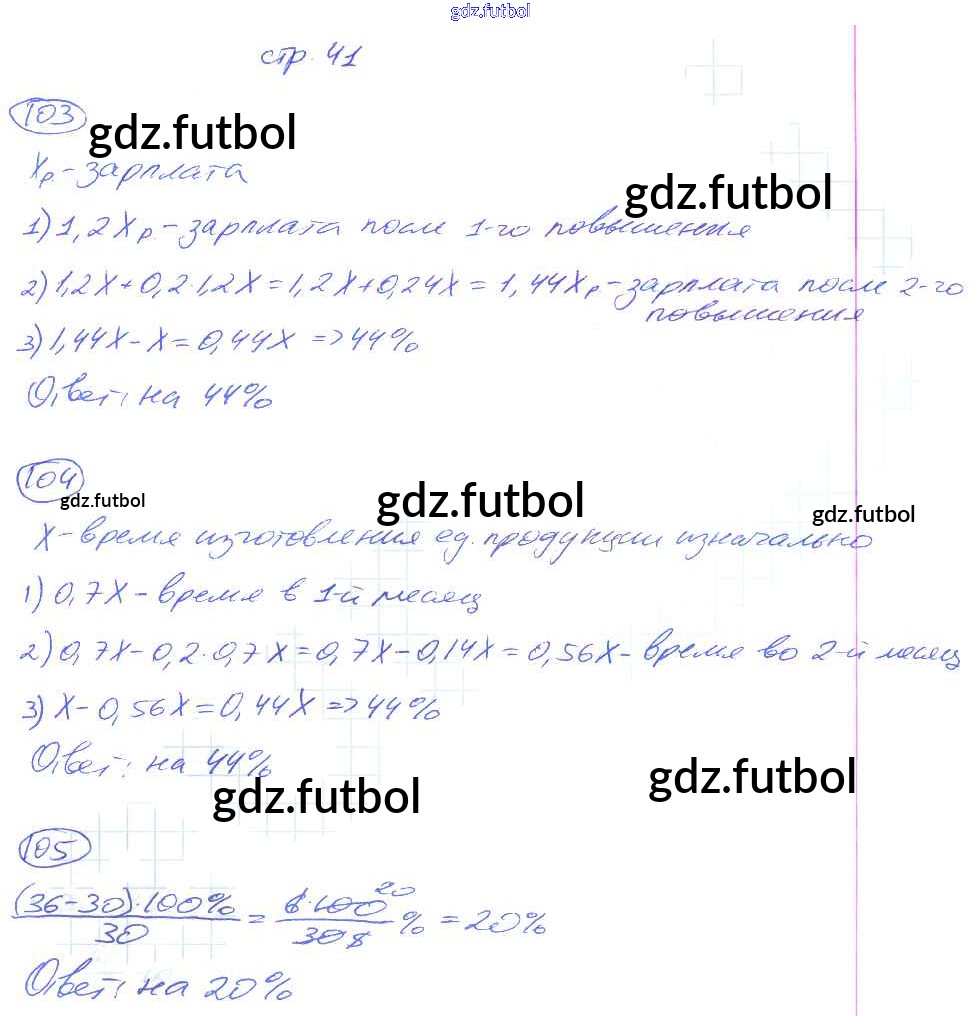 gdz.futbol
стр. 41
103
gdz.futbol
Xр. - зарплата
gdz.futbol
1) 1,2Xр. - зарплата после 1-го повышения
2) 1,2X + 0,2·1,2X = 1,2X + 0,24X = 1,44Xр - зарплата после 2-го
повышения
3) 1,44X - X = 0,44X => 44%
Ответ: на 44%
104
gdz.futbol
gdz.futbol
gdz.futbol
X - время изготовления ед. продукции изначально
1) 0,7X - время в 1-й месяц
2) 0,7X - 0,2·0,7X = 0,7X - 0,14X = 0,56X - время во 2-й месяц
3) X - 0,56X = 0,44X => 44%
Ответ: на 44%
gdz.futbol
gdz.futbol
105
(36-30)·100% / 30 = 6·100 20 / 30 5 % = 20%
Ответ: на 20%